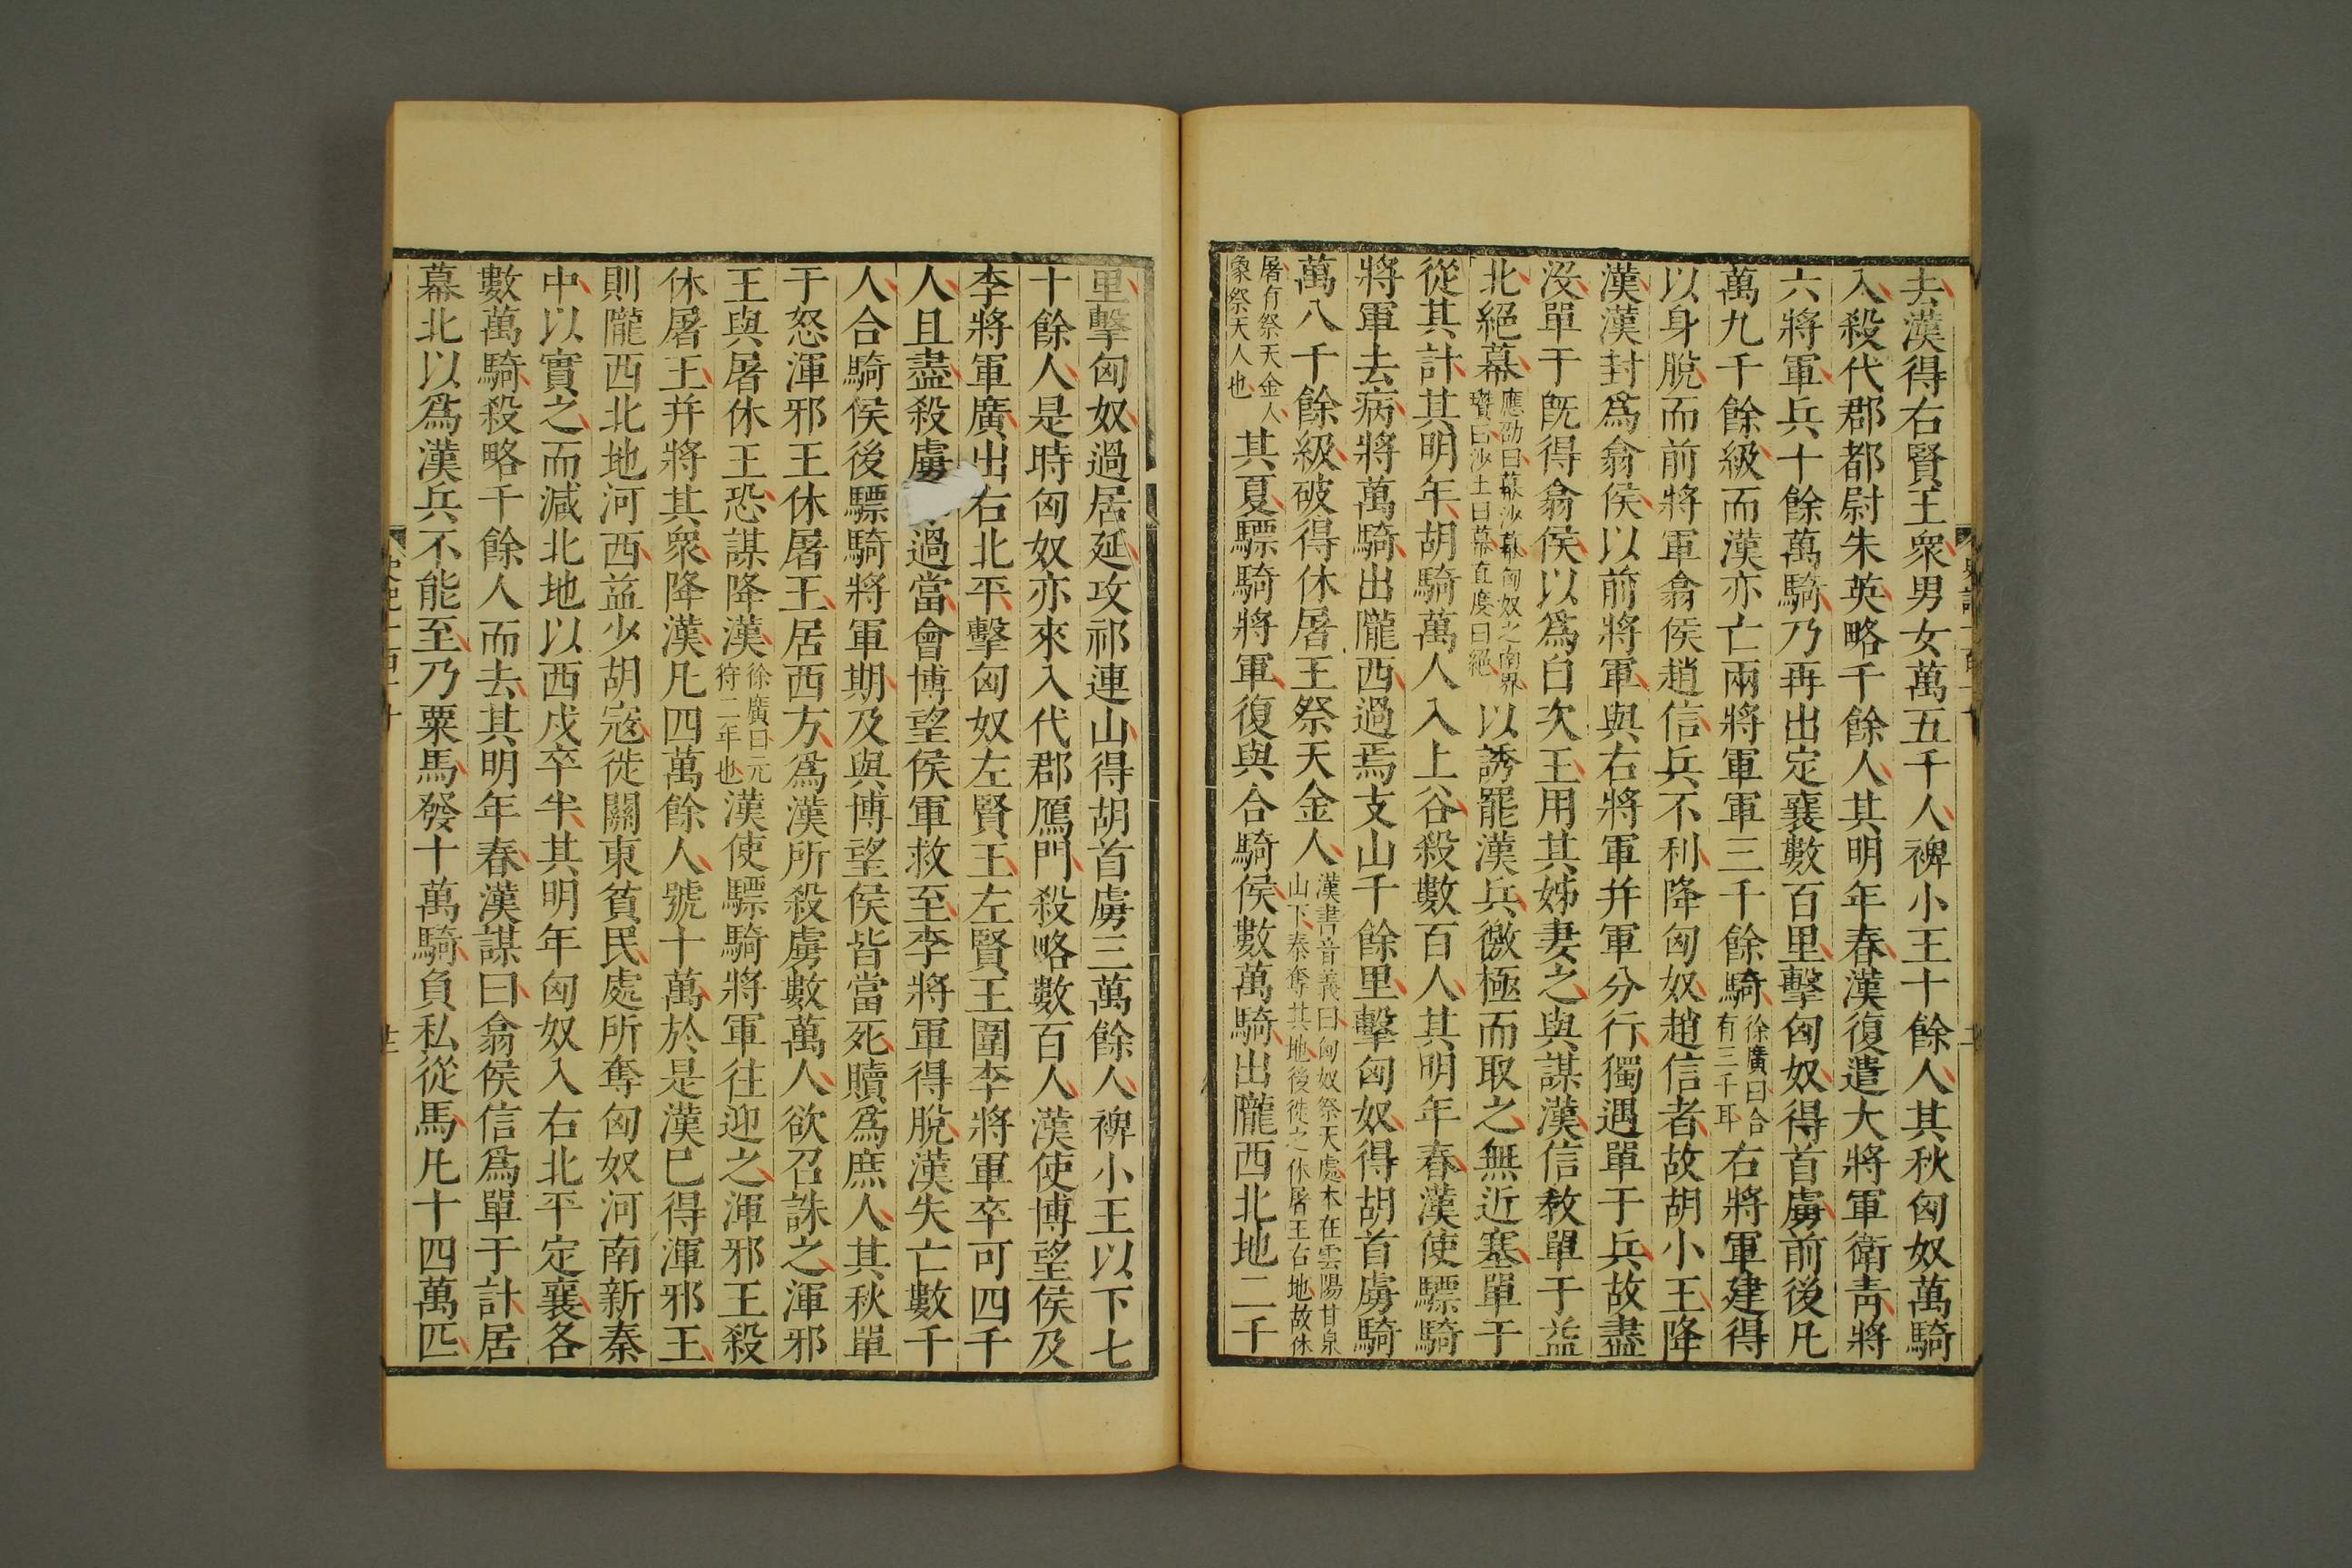 去漢得右賢王衆男女萬五千人裨小王十餘人其秋匈奴萬騎
入殺代郡都尉朱英略千餘人其明年春漢復遣大將軍衛青將
六將軍兵十餘萬騎乃再出定襄數百里擊匈奴得首虜前後凡
萬九千餘級而漢亦亡兩將軍軍三千餘騎徐廣曰合有三千耳右將軍建得
以身脫而前將軍翕侯趙信兵不利降匈奴趙信者故胡小王降
漢漢封爲翕侯以前將軍與右將軍并軍分行獨遇單于兵故盡
沒單于既得翕侯以爲自次王用其姊妻之與謀漢信教單于益
北絕幕應劭曰幕沙幕匈奴之南界瓚曰沙土曰幕直度曰絕以誘罷漢兵徼極而取之無近塞單于
從其計其明年胡騎萬人入上谷殺數百人其明年春漢使驃騎
將軍去病將萬騎出隴西過焉支山千餘里擊匈奴得胡首虜騎
萬八千餘級破得休屠王祭天金人漢書音義曰匈奴祭天處本在雲陽甘泉山下秦奪其地後徙之休屠王右地故休
屠有祭天金人象祭天人也其夏驃騎將軍復與合騎侯數萬騎出隴西北地二千
里擊匈奴過居延攻祁連山得胡首虜三萬餘人裨小王以下七
十餘人是時匈奴亦來入代郡鴈門殺略數百人漢使博望侯及
李將軍廣出右北平擊匈奴左賢王左賢王圍李將軍卒可四千
人且盡殺虜過當會博望侯軍救至李將軍得脫漢失亡數千
人合騎侯後驃騎將軍期及與博望侯皆當死贖爲庶人其秋單
于怒渾邪王休屠王居西方爲漢所殺虜數萬人欲召誅之渾邪
王與屠休王恐謀降漢徐廣曰元狩二年也漢使驃騎將軍往迎之渾邪王殺
休屠王并將其衆降漢凡四萬餘人號十萬於是漢已得渾邪王
則隴西北地河西益少胡寇徙關東貧民處所奪匈奴河南新秦
中以實之而減北地以西戍卒半其明年匈奴入右北平定襄各
數萬騎殺略千餘人而去其明年春漢謀曰翕侯信爲單于計居
幕北以爲漢兵不能至乃粟馬發十萬騎負私從馬凡十四萬匹